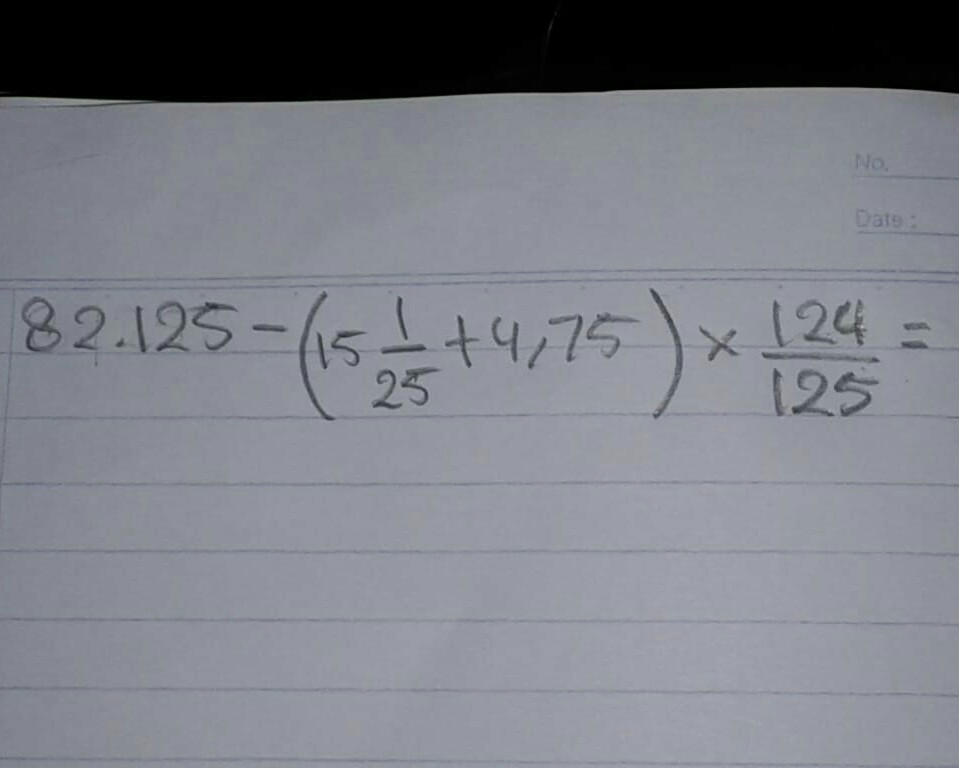 No.
Date :
82.125 - (15 1/25 + 4,75) × 124/125 =